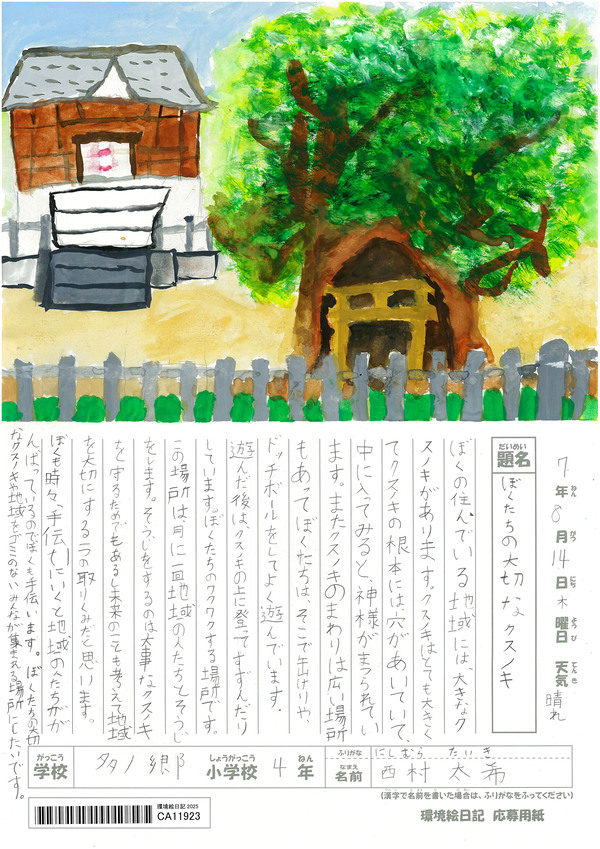 7年8月14日木曜日 天気 晴れ
ねん がつ にち ようび てんき
だいめい
題名 ぼくたちの大切なクスノキ
ぼくの住んでいる地域には、大きなク
スノキがあります。クスノキはとても大きく
てクスノキの根本には穴があいていて、
中に入ってみると、神様がまつられてい
ます。またクスノキのまわりは広い場所
もあってぼくたちは、そこで缶けりや、
ドッチボールをしてよく遊んでいます。
遊んだ後は、クスノキの上に登ってすずんだり
しています。ぼくたちのワクワクする場所です。
この場所は月に一回地域の人たちとそうじ
をします。そうじをするのは大事なクスノキ
を守るためでもあるし未来のことも考えて地域
を大切にする一つの取りくみだと思います。
ぼくも時々、手伝いにいくと地域の人たちがが
んばっているのでぼくも手伝います。ぼくたちの大切
なクスノキや地域をゴミのないみんなが集まれる場所にしたいです。
がっこう しょうがっこう ねん
学校 多ノ郷 小学校 4年
ふりがな にしむら たいき
なまえ
名前 西村 太希
(漢字で名前を書いた場合は、ふりがなをふってください)
環境絵日記 2025
CA11923
環境絵日記 応募用紙